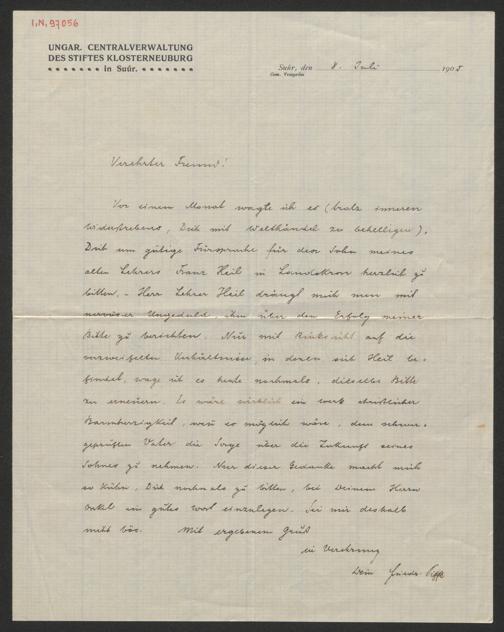 I.N. 97056
UNGAR. CENTRALVERWALTUNG
DES STIFTES KLOSTERNEUBURG
in Suúr.
Suúr, den 8. Juli 1905
Com. Veszprém
Verehrter Freund!
Vor einem Monat wagte ich es (trotz inneren
Widerstrebens, Dich mit Welthändel zu behelligen),
Dich um gütige Fürsprache für den Sohn meines
alten Lehrers Franz Heil in Landskron herzlich zu
bitten. - Herr Lehrer Heil drängt mich nun mit
nervöser Ungeduld, ihm über den Erfolg meiner
Bitte zu berichten. Nur mit Rücksicht auf die
verzweifelten Verhältnisse, in denen sich Heil be-
findet, wage ich es heute nochmals, dieselbe Bitte
zu erneuern. Es wäre wirklich ein Werk christlicher
Barmherzigkeit, wenn es möglich wäre, dem schwer-
geprüften Vater die Sorge über die Zukunft seines
Sohnes zu nehmen. Nur dieser Gedanke macht mich
so kühn, Dich nochmals zu bitten, bei Deinem Herrn
Onkel ein gutes Wort einzulegen. Sei mir deshalb
nicht bös. Mit ergebenem Gruß
in Verehrung
Dein